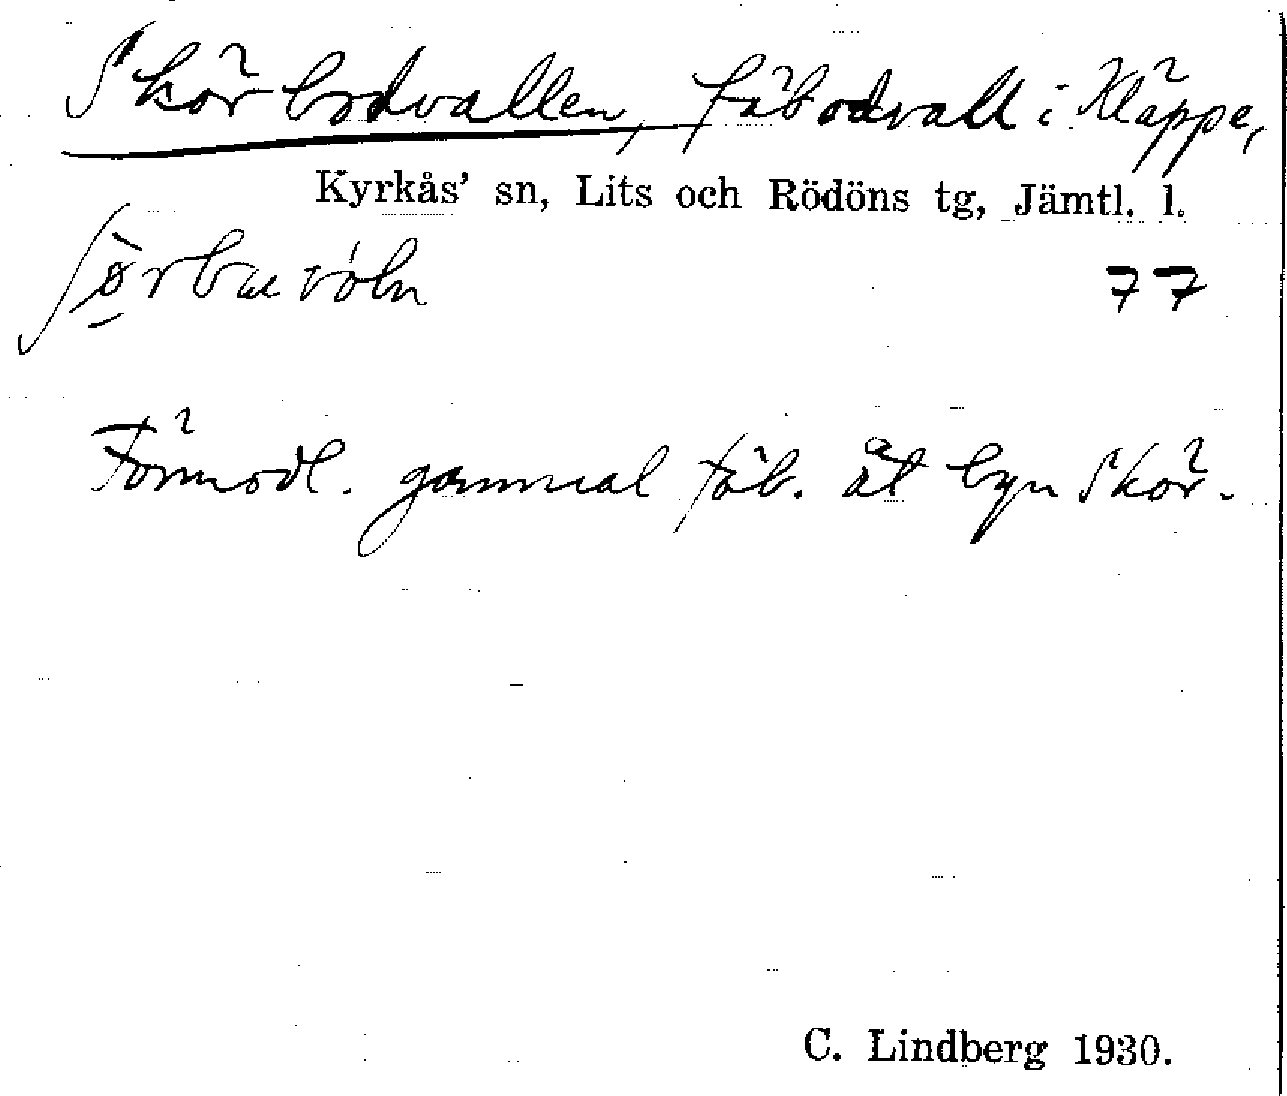 Skörbodvallen, fäbodvall i Kläppe,
Kyrkås' sn, Lits och Rödöns tg, Jämtl. l.
77
Förmodl. gammal fäb. åt byn Skör.
C. Lindberg 1930.